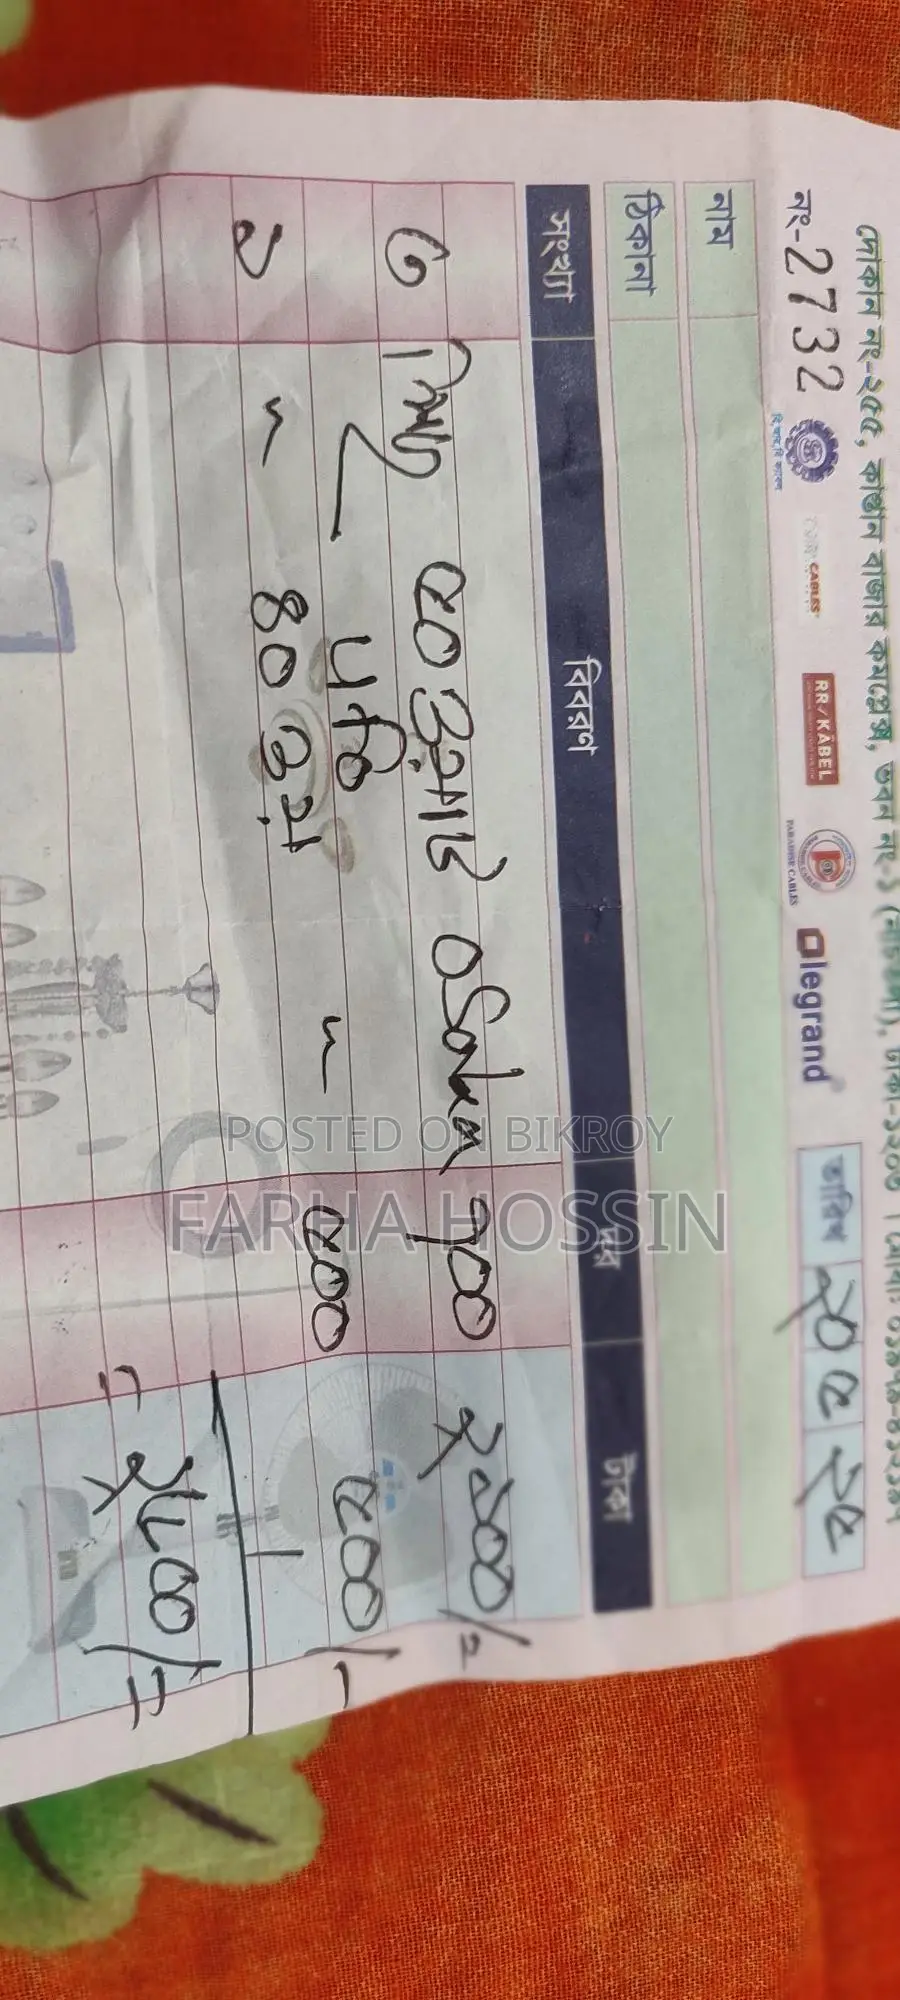 দোকান নং-২৫৫, কাপ্তান বাজার কমপ্লেক্স, ভবন নং-১ ঢাকা-১২০৩
নং-2732
CABLES
RR KABEL
PARADISE CABLES
legrand
তারিখ ২০ ৫ ২৫
নাম
ঠিকানা
সংখ্যা বিবরণ দর টাকা
৩ ৫০ ওয়াট ৭০০ ২১০০/=
১ " ৪০ ওয়া " ৫০০ ৫০০/-
= ২৬০০/=
POSTED ON BIKROY
FARHA HOSSIN